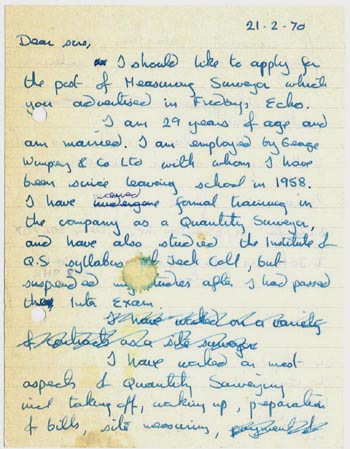 21-2-70
Dear sirs,
I should like to apply for
the post of Measuring Surveyor which
you advertised in Fridays Echo.
I am 29 years of age and
am married. I am employed by George
Wimpey & Co Ltd with whom I have
been since leaving school in 1958.
received
I have undergone formal training in
the company as a Quantity Surveyor,
and have also studied the Institute of
Q.S syllabus at Tech Coll, but
suspended my studies after I had passed
the Inter Exam
I have worked on a variety
of contracts as a site surveyor
I have worked on most
aspects of Quantity Surveying
incl taking off, working up, preparation
of bills, site measuring,